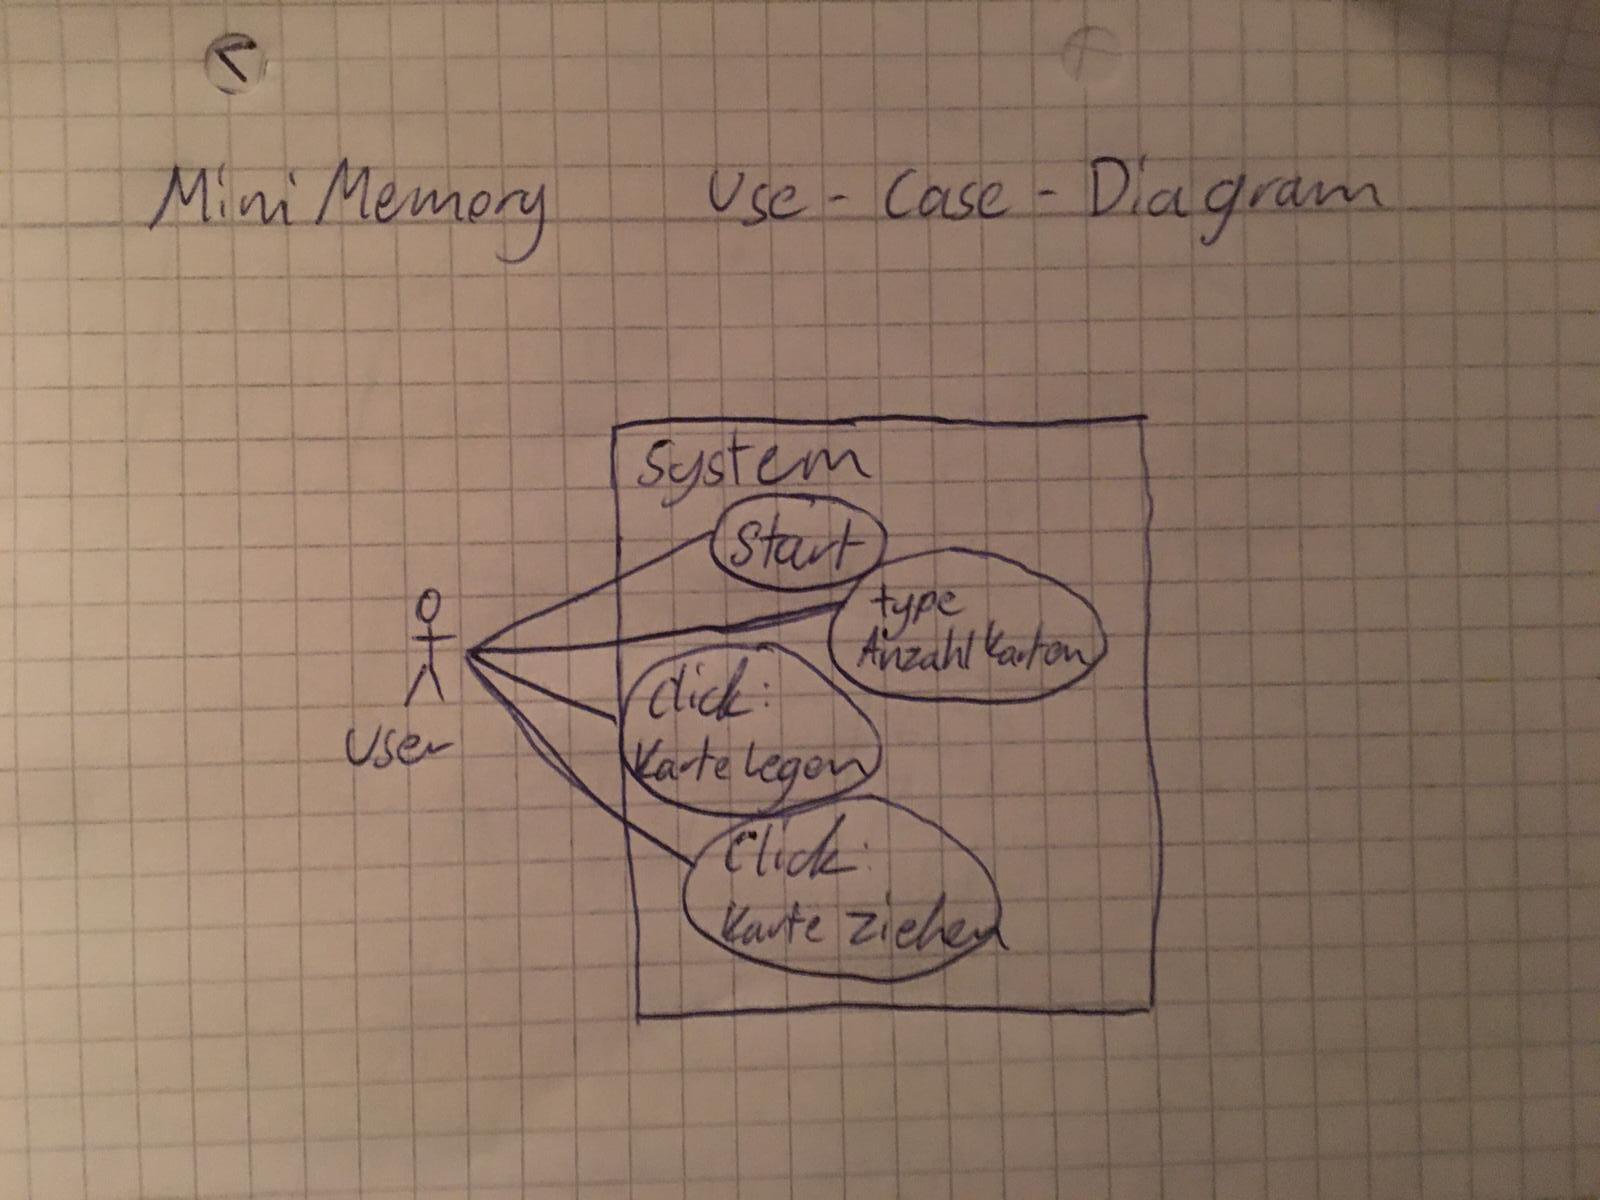 Mini Memory Use-Case-Diagram
System
Start
type
Anzahl Karten
Click:
Karte legen
User
Click:
Karte ziehen